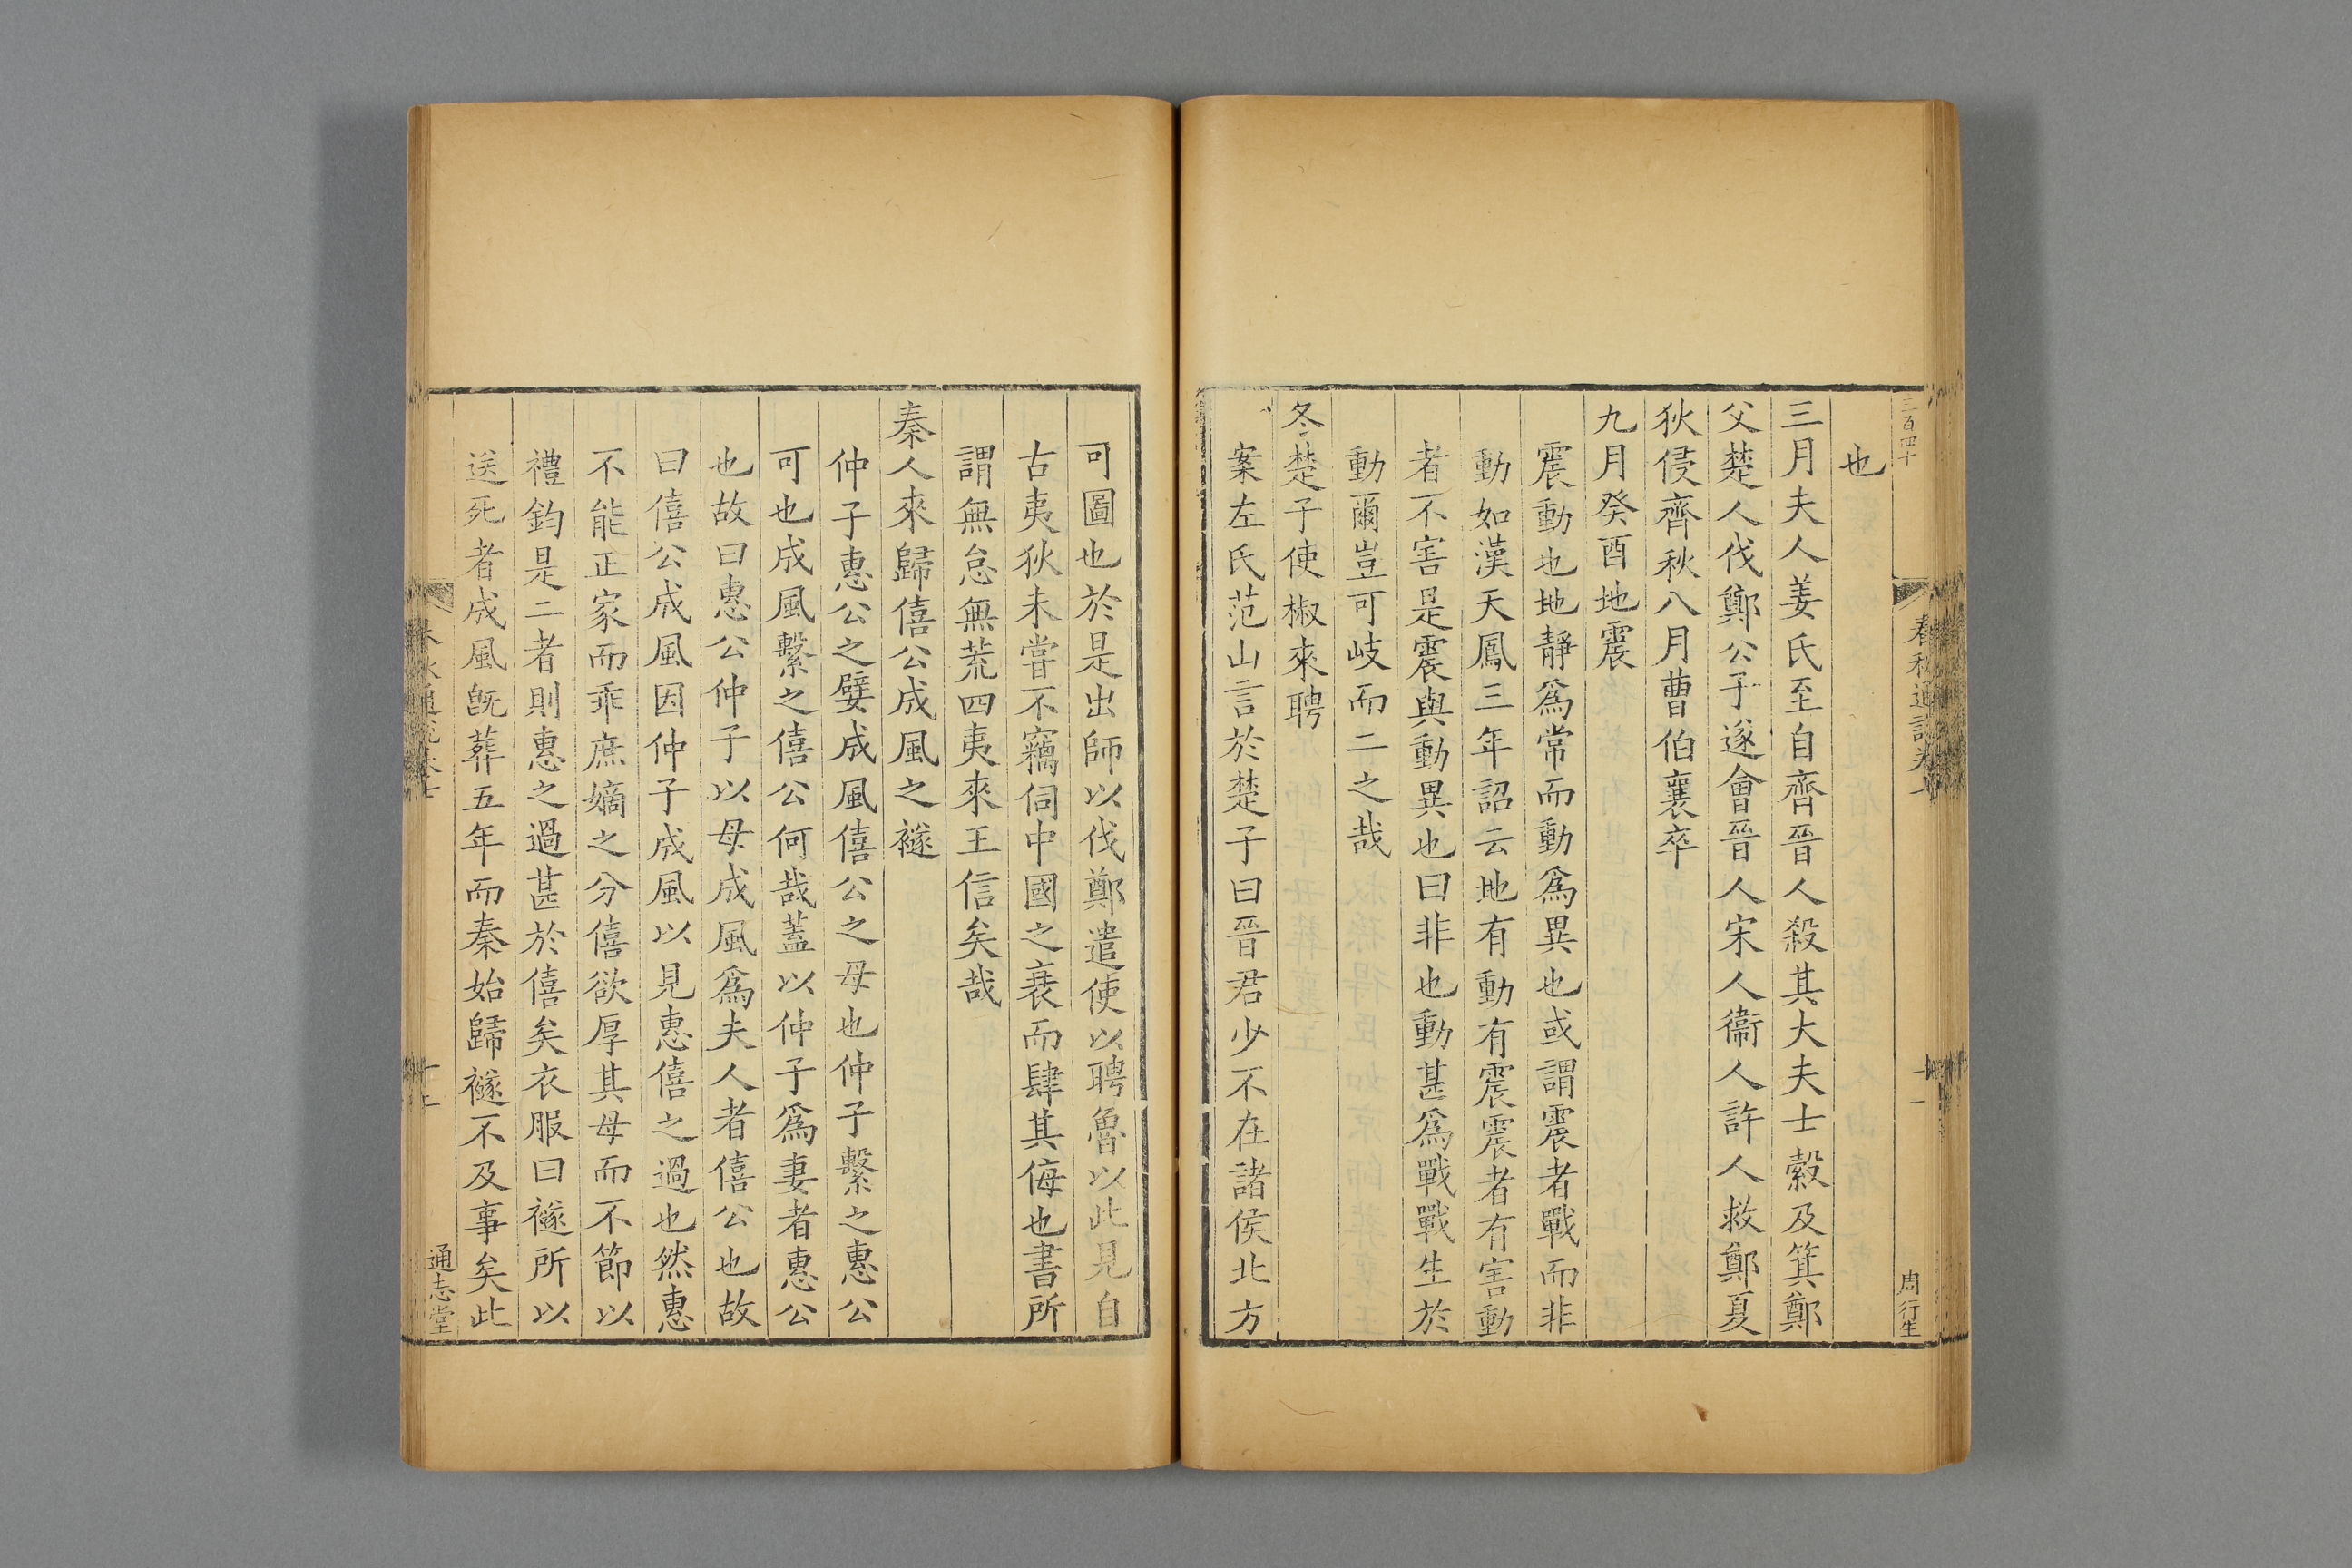 三百四十
春秋通說卷七
周行生
也
三月夫人姜氏至自齊晉人殺其大夫士縠及箕鄭
父楚人伐鄭公子遂會晉人宋人衞人許人救鄭夏
狄侵齊秋八月曹伯襄卒
九月癸酉地震
震動也地靜爲常而動爲異也或謂震者戰而非
動如漢天鳳三年詔云地有動有震震者有害動
者不害是震與動異也曰非也動甚爲戰戰生於
動爾豈可岐而二之哉
冬楚子使椒來聘
案左氏范山言於楚子曰晉君少不在諸侯北方
可圖也於是出師以伐鄭遣使以聘魯以此見自
古夷狄未嘗不竊伺中國之衰而肆其侮也書所
謂無怠無荒四夷來王信矣哉
秦人來歸僖公成風之襚
仲子惠公之嬖成風僖公之母也仲子繫之惠公
可也成風繫之僖公何哉蓋以仲子爲妻者惠公
也故曰惠公仲子以母成風爲夫人者僖公也故
曰僖公成風因仲子成風以見惠僖之過也然惠
不能正家而乖庶嫡之分僖欲厚其母而不節以
禮鈞是二者則惠之過甚於僖矣衣服曰襚所以
送死者成風旣葬五年而秦始歸襚不及事矣此
通志堂